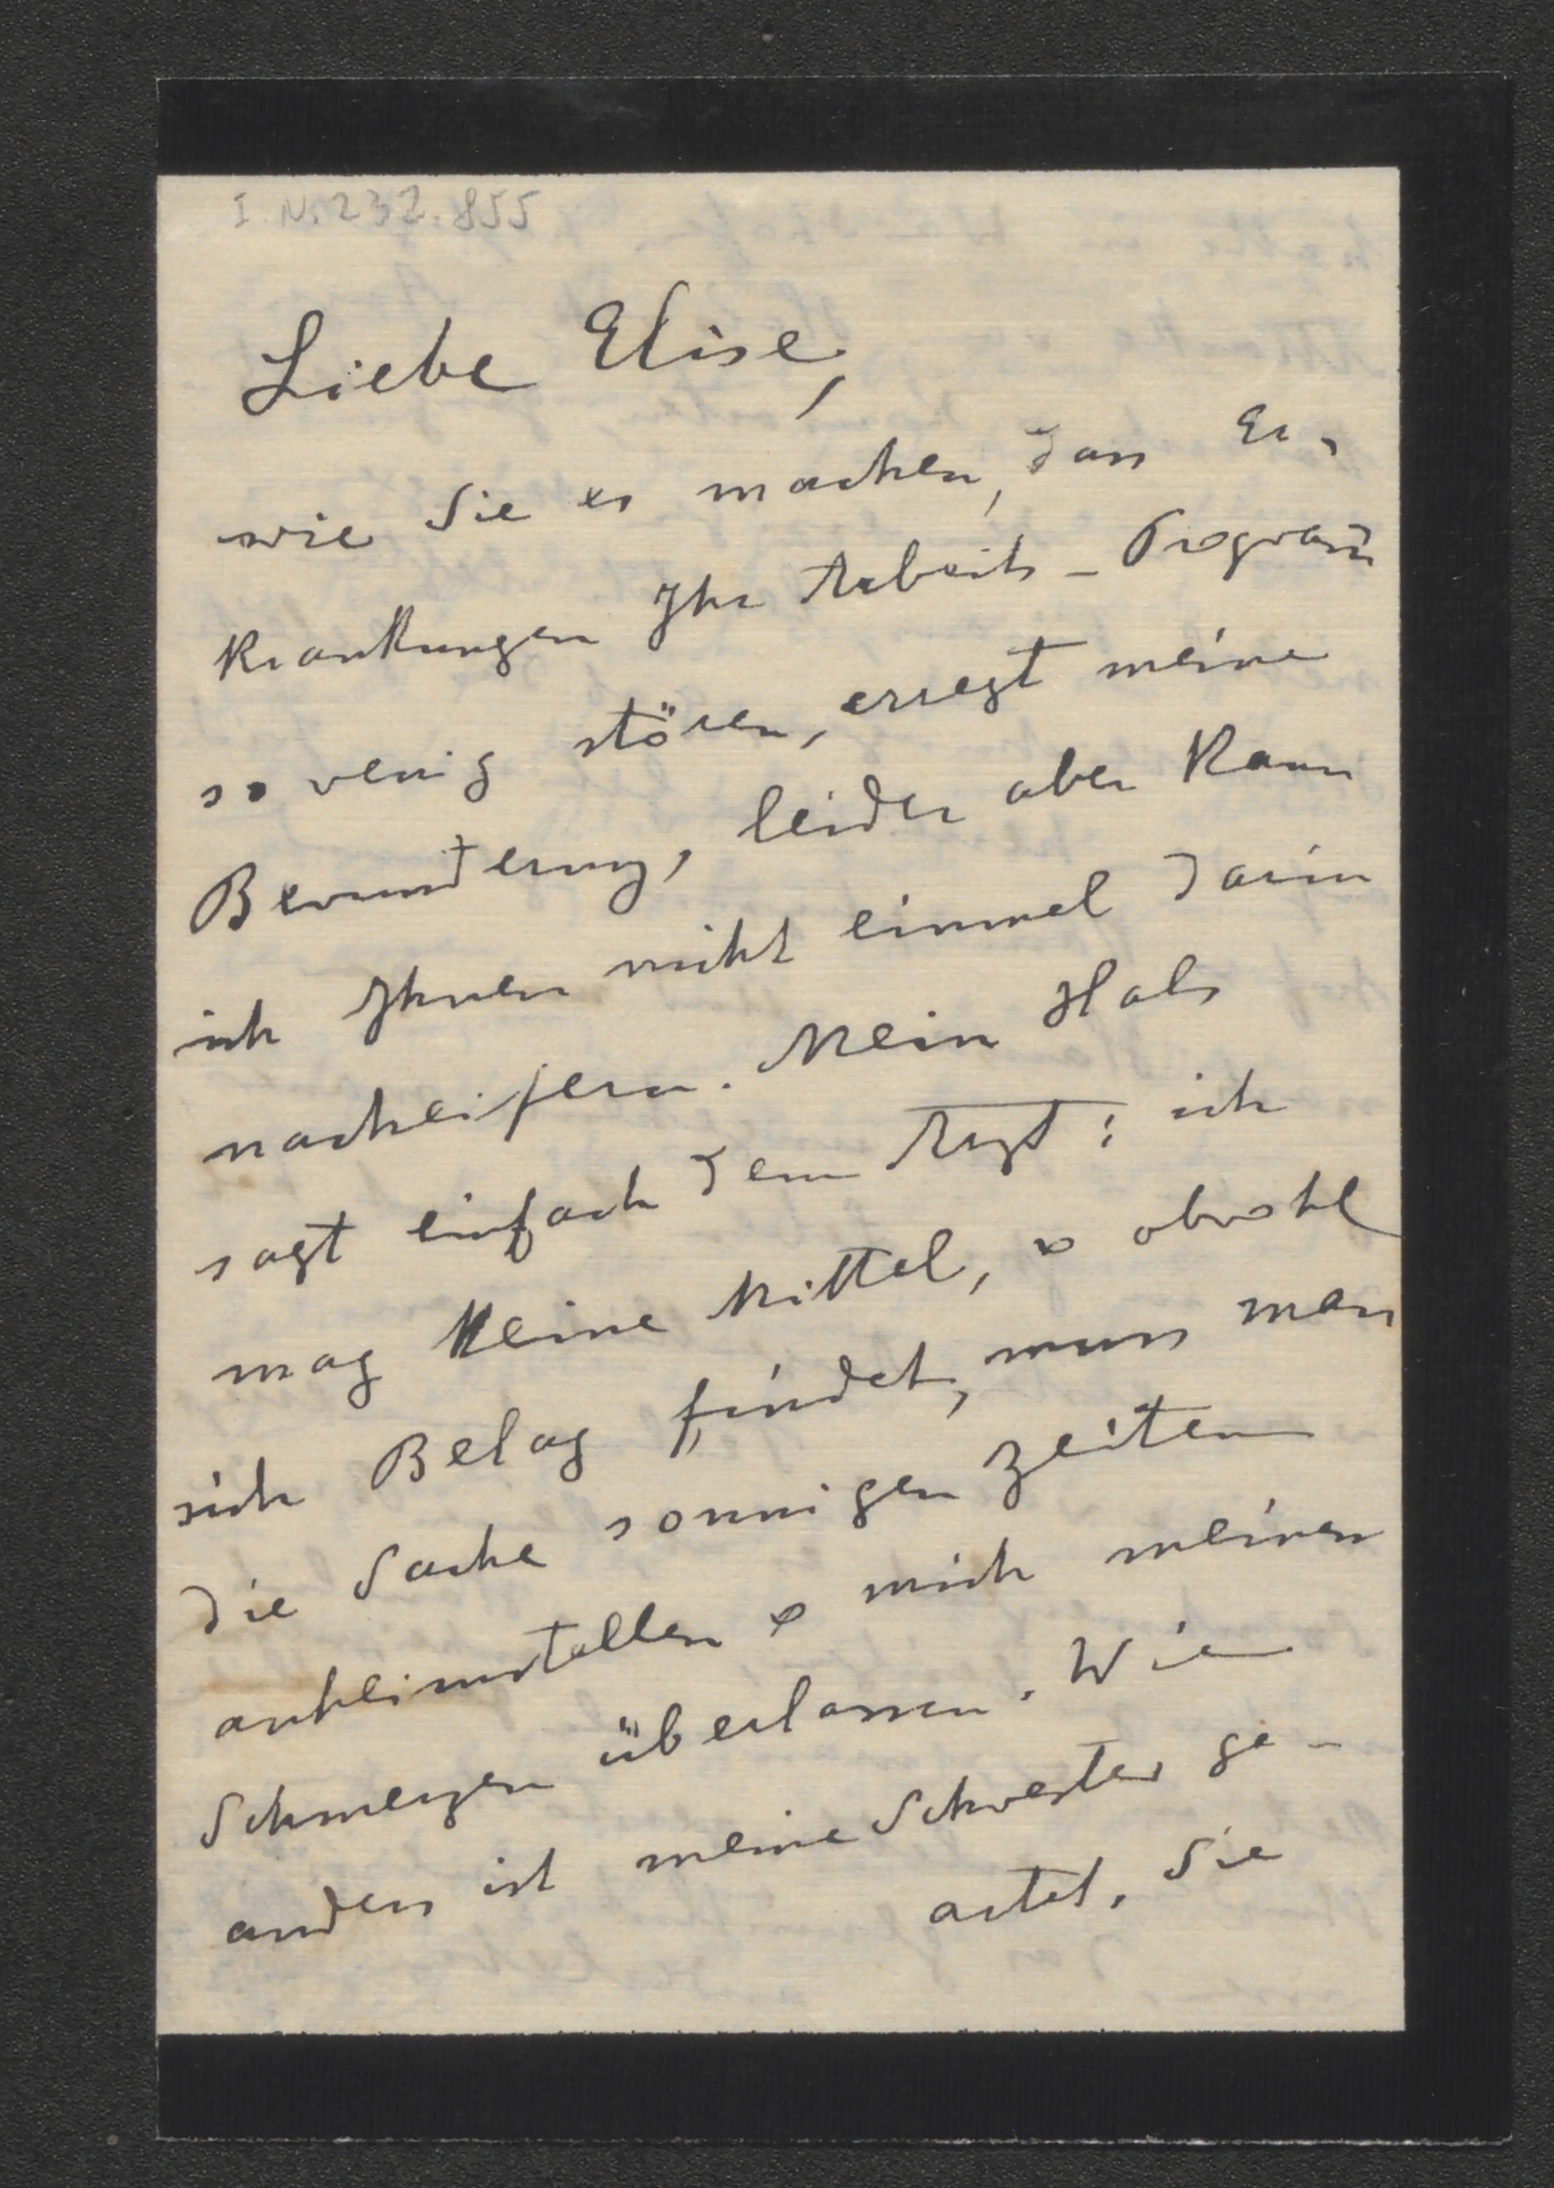 I.N. 232.855
Liebe Elise,
wie Sie es machen, dass Er-
krankungen Ihr Arbeits-Program̄
so wenig stören, erregt meine
Bewunderung, leider aber kann
ich Ihnen nicht einmal darin
nacheifern. Mein Hals
sagt einfach dem Arzt: ich
mag keine Mittel, & obwohl
sich Belag findet, muss man
die Sache sonnigen Zeiten
anheimstellen & mich meinen
Schmerzen überlassen. Wie
anders ist meine Schwester ge-
artet. Sie